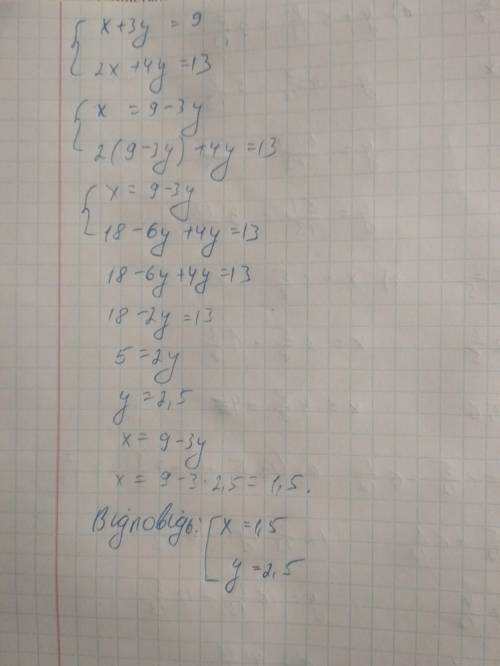 { x + 3y = 9
2x + 4y = 13
{ x = 9 - 3y
2(9 - 3y) + 4y = 13
{ x = 9 - 3y
18 - 6y + 4y = 13
18 - 6y + 4y = 13
18 - 2y = 13
5 = 2y
y = 2,5
x = 9 - 3y
x = 9 - 3 · 2,5 = 1,5.
Відповідь: [ x = 1,5
y = 2,5